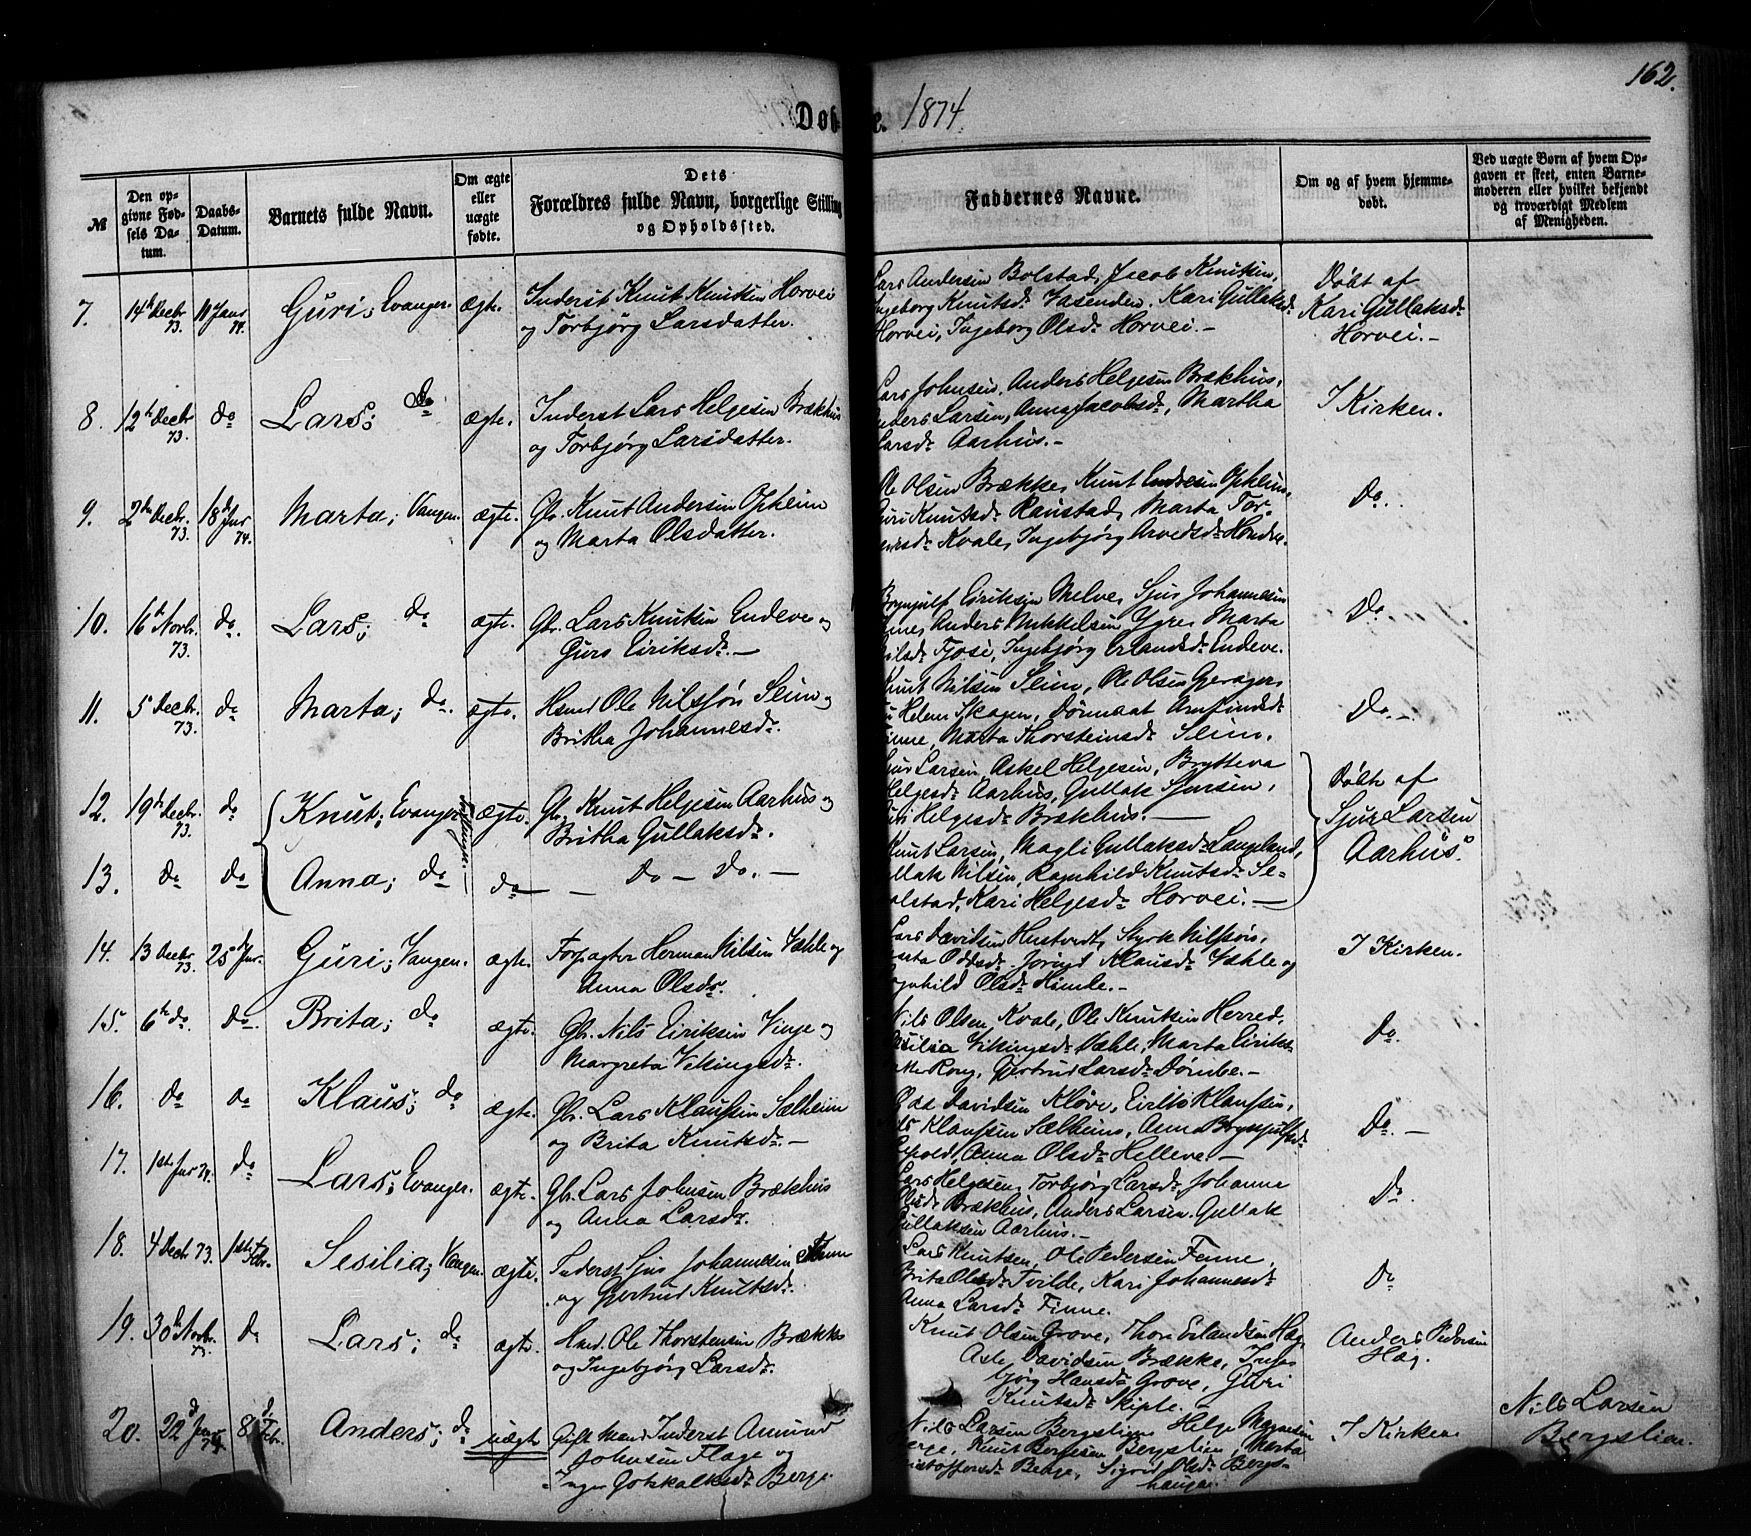 162.
Døb e. 1874.
№
Den opgivne Fødsels Datum.
Daabs-Datum.
Barnets fulde Navn.
Om ægte eller uægte fødte.
Dets Forældres fulde Navn, borgerlige Stilling og Opholdssted.
Faddernes Navne.
Om og af hvem hjemmedøbt.
Ved uægte Børn af hvem Opgaven er skeet, enten Barnemoderen eller hvilket bekjendt og troværdigt Medlem af Menigheden.
7. 14de Decbr 73. 11 Janr 74. Guri; Evanger. ægte. Inderst Knut Knutsen Horvei
og Torbjørg Larsdatter.
Lars Andersen Bolstad, Jacob Knutsen,
Ingeborg Knutsdr Vasenden, Kari Gullaksdr
Horvei, Ingeborg Olsdr Horvei.-
Døbt af
Kari Gullaksdr
Horvei.-
8. 12te Decbr 73. do Lars; do ægte. Inderst Lars Helgesen Brækhus
og Torbjørg Larsdatter.
Lars Johnsen, Anders Helgesen Brækhus,
Anders Larsen, Anna Jacobsdr, Martha
Larsdr Aarhus.-
I Kirken.
9. 2den Decbr. 73. 18de Jnr 74. Marta; Vangen. ægte. Gbr. Knut Andersen Opheim
og Marta Olsdatter.
Ole Olsen Brække, Knut Endresen Opheim,
Guri Knutsdr Raustad, Marta Tor-
dr Kvale, Ingebjørg Arvedsdr
Do.
10. 16de Novbr. 73. do. Lars; do ægte. Gbr. Lars Knutsen Endeve og
Guro Eiriksdr.-
Brynjulf Eiriksen Melve, Sjur Johannessen
Anders Mikkelsen Ygre, Marta
Nilsdr Tjose, Ingebjørg Erlandsdr Endeve.
Do
11. 5 Decbr. 73. do Marta; do. ægte. Hsmd Ole Nilssøn Seim og
Britha Johannesdr.
Knut Nilsen Seim, Ole Olsen Gjerager,
Helene Skogen, Arnfindsdr
Finne, Marta Thorsteinsdr Seim.
Do.-
12. 19de Decbr. 73. do Knut; Evanger Tvillinger. ægte. Gbr. Knut Helgesen Aarhus og
Britha Gullaksdr.
Sjur Larsen, Askel Helgesen, Brytteva
Helgesdr Aarhus, Gullak Sjursen,
Guri Helgesdr Brækhus.-
Døbte af
Sjur Larsen
Aarhus.
13. do do Anna; do do - Do - Do.-
Knut Larsen, Magli Gullaksdr Langeland,
Gullak Nilsen, Ragnhild Knutsdr Se-
lstad, Kari Helgesdr Horvei.-
14. 13 Decbr 73. 25 Jnr. Guri; Vangen. ægte. Forpagter Herman Nilsen Væhle og
Anna Olsdr.
Lars Davidsen Hustvedt, Styrk Nilssøn,
Marta Oddsdr. Jorind Klausdr Væhle og
Ragnhild Olsdr Himle.-
I Kirken.
15. 6te do. Do. Brita; do ægte. Gbr. Nils Eiriksen Vinje og
Margreta Vikingsdr.
Nils Olsen Kvale, Ole Knutsen Herred,
Vikingsdr Væhle, Marta Eiriks-
datter Rong, Gjertrud Larsdr
Do.
16. do do Klaus; do ægte. Gbr. Lars Klaussen Sælheim
og Brita Knutsdr.-
Davidsen Kløve, Eirik Klaussen,
Nils Klaussen Sælheim, Anna Brynjulfsdr
Anna Olsdr Helleve.-
Do.-
17. 1ste Jnr 74. do Lars; Evanger. ægte. Gbr. Lars Johnsen Brækhus
og Anna Larsdr.
Lars Helgesen, Torbjørg Larsdr, Johanna
Olsdr Brækhus, Anders Larsen, Gullak
Gullaksen Aarhus.-
Do.
18. 4 Decbr 73. 1ste Febr. Sesilia; Vangen. ægte. Inderst Sjur Johannesen Finne
og Gjertrud Knutsdr.
Lars Knutsen, Ole Pedersen Finne,
Brita Olsdr Tvilde, Kari Johannesdr
Anna Larsdr Finne.
Do
19. 30te Novbr. 73. do Lars; do ægte. Hsmd. Ole Thorstensen Brække
og Ingebjørg Larsdr.
Knut Olsen Grove, Thore Erlandsen Hæg,
Asle Davidsen Brække, Inge-
bjørg Hansdr Grove, Guri
Knutsdr Skiple.
Anders Pedersen
Hæg.
20. 22d Jnr 74. 8d Feb. Anders; do uægte Gift Mand Inderst Amund
Johnsen Flage og
Inger Gotskalksdr Berge.
Nils Larsen Bergslien, Helge Magnesen
Berge, Knut Bergesen Bergslien, Marta
Kristoffersdr Berge, Sigrid Olsdr Bergs-
haugen.
I Kirken
Nils Larsen
Bergslien.